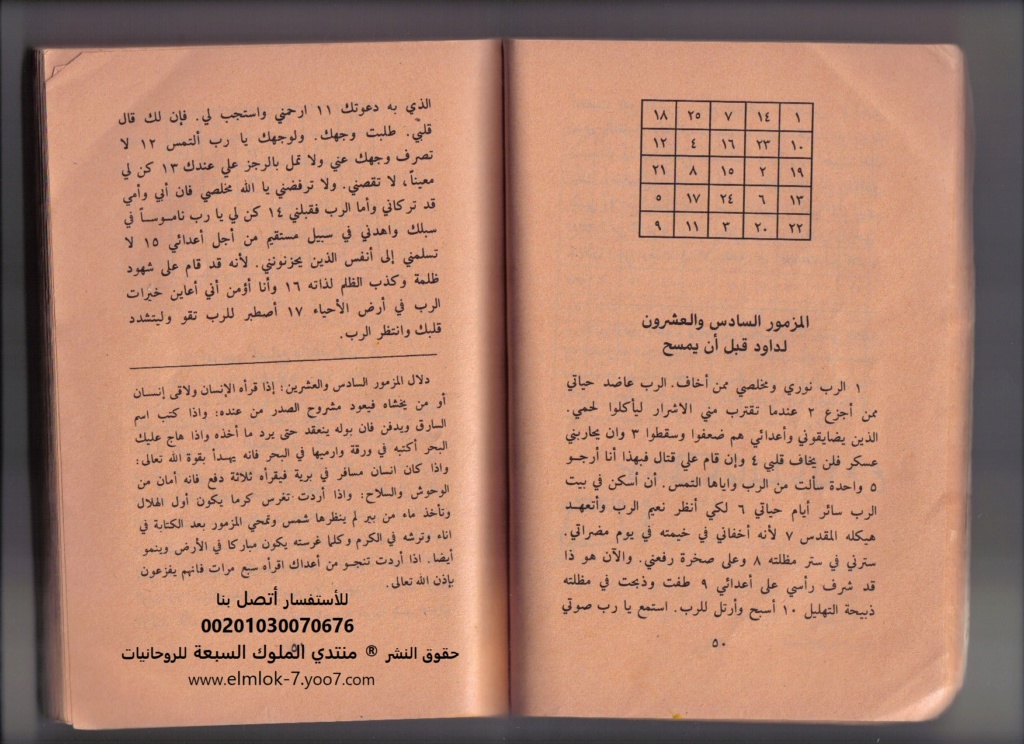 ١ ١٤ ٧ ٢٥ ١٨
١٠ ٢٣ ١٦ ٤ ١٢
١٩ ٢ ١٥ ٨ ٢١
١٣ ٦ ٢٤ ١٧ ٥
٢٢ ٢٠ ٣ ١١ ٩
المزمور السادس والعشرون
لداود قبل أن يمسح
١ الرب نوري ومخلصي ممن أخاف. الرب عاضد حياتي
ممن أجزع ٢ عندما تقترب مني الاشرار ليأكلوا لحمي.
الذين يضايقوني وأعدائي هم ضعفوا وسقطوا ٣ وان يحاربني
عسكر فلن يخاف قلبي ٤ وإن قام علي قتال فبهذا أنا أرجو
٥ واحدة سألت من الرب واياها التمس. أن أسكن في بيت
الرب سائر أيام حياتي ٦ لكي أنظر نعيم الرب وأتعهد
هيكله المقدس ٧ لأنه أخفاني في خيمته في يوم مضراتي.
سترني في ستر مظلته ٨ وعلى صخرة رفعني. والآن هو ذا
قد شرف رأسي على أعدائي ٩ طفت وذبحت في مظلته
ذبيحة التهليل ١٠ أسبح وأرتل للرب. استمع يا رب صوتي
٥٠
الذي به دعوتك ١١ ارحمني واستجب لي. فإن لك قال
قلبي. طلبت وجهك. ولوجهك يا رب ألتمس ١٢ لا
تصرف وجهك عني ولا تمل بالرجز علي عندك ١٣ كن لي
معيناً، لا تقصني. ولا ترفضني يا الله مخلصي فان أبي وأمي
قد تركاني وأما الرب فقبلني ١٤ كن لي يا رب ناموساً في
سبلك واهدني في سبيل مستقيم من أجل أعدائي ١٥ لا
تسلمني إلى أنفس الذين يحزنونني. لأنه قد قام على شهود
ظلمة وكذب الظلم لذاته ١٦ وأنا أؤمن أني أعاين خيرات
الرب في أرض الأحياء ١٧ أصطبر للرب تقو وليتشدد
قلبك وانتظر الرب.
دلال المزمور السادس والعشرين: إذا قرأه الإنسان ولاقى إنسان
أو من يخشاه فيعود مشروح الصدر من عنده: واذا كتب اسم
السارق ويدفن فان بوله ينعقد حتى يرد ما أخذه واذا هاج عليك
البحر أكتبه في ورقة وارميها في البحر فانه يهدأ بقوة الله تعالى:
واذا كان انسان مسافر في برية فيقرأه ثلاثة دفع فانه أمان من
الوحوش والسلاح: واذا أردت تغرس كرما يكون أول الهلال
وتأخذ ماء من بير لم ينظرها شمس وتمحي المزمور بعد الكتابة في
اناء وترشه في الكرم وكلما غرسته يكون مباركا في الأرض وينمو
أيضا. اذا أردت تنجو من أعداك اقرأه سبع مرات فانهم يفزعون
بإذن الله تعالى.
للأستفسار أتصل بنا
00201030070676
حقوق النشر ® منتدي الملوك السبعة للروحانيات
www.elmlok-7.yoo7.com